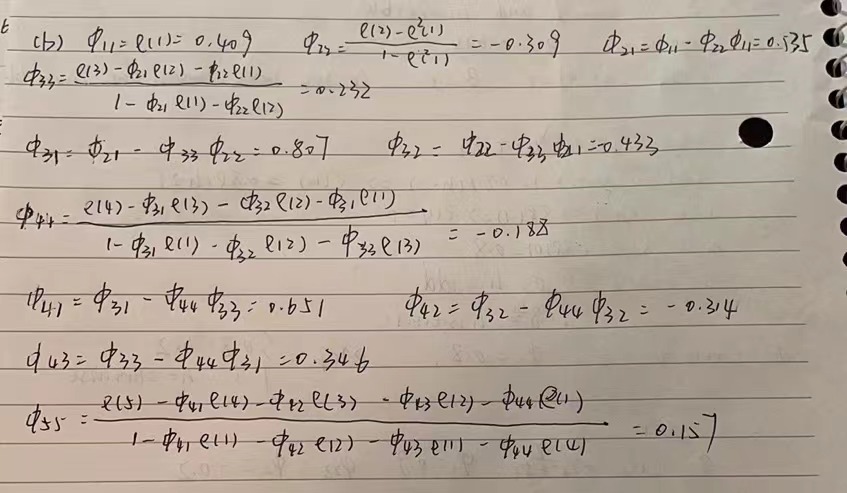 (b) φ₁₁ = ρ(1) = 0.409 φ₂₂ = (ρ(2) - ρ²(1)) / (1 - ρ²(1)) = -0.309 φ₂₁ = φ₁₁ - φ₂₂φ₁₁ = 0.535
φ₃₃ = (ρ(3) - φ₂₁ρ(2) - φ₂₂ρ(1)) / (1 - φ₂₁ρ(1) - φ₂₂ρ(2)) = 0.232
φ₃₁ = φ₂₁ - φ₃₃φ₂₂ = 0.807 φ₃₂ = φ₂₂ - φ₃₃φ₂₁ = -0.433
φ₄₄ = (ρ(4) - φ₃₁ρ(3) - φ₃₂ρ(2) - φ₃₁ρ(1)) / (1 - φ₃₁ρ(1) - φ₃₂ρ(2) - φ₃₃ρ(3)) = -0.188
φ₄₁ = φ₃₁ - φ₄₄φ₃₃ = 0.651 φ₄₂ = φ₃₂ - φ₄₄φ₃₂ = -0.314
φ₄₃ = φ₃₃ - φ₄₄φ₃₁ = 0.346
φ₅₅ = (ρ(5) - φ₄₁ρ(4) - φ₄₂ρ(3) - φ₄₃ρ(2) - φ₄₄ρ(1)) / (1 - φ₄₁ρ(1) - φ₄₂ρ(2) - φ₄₃ρ(1) - φ₄₄ρ(4)) = 0.157